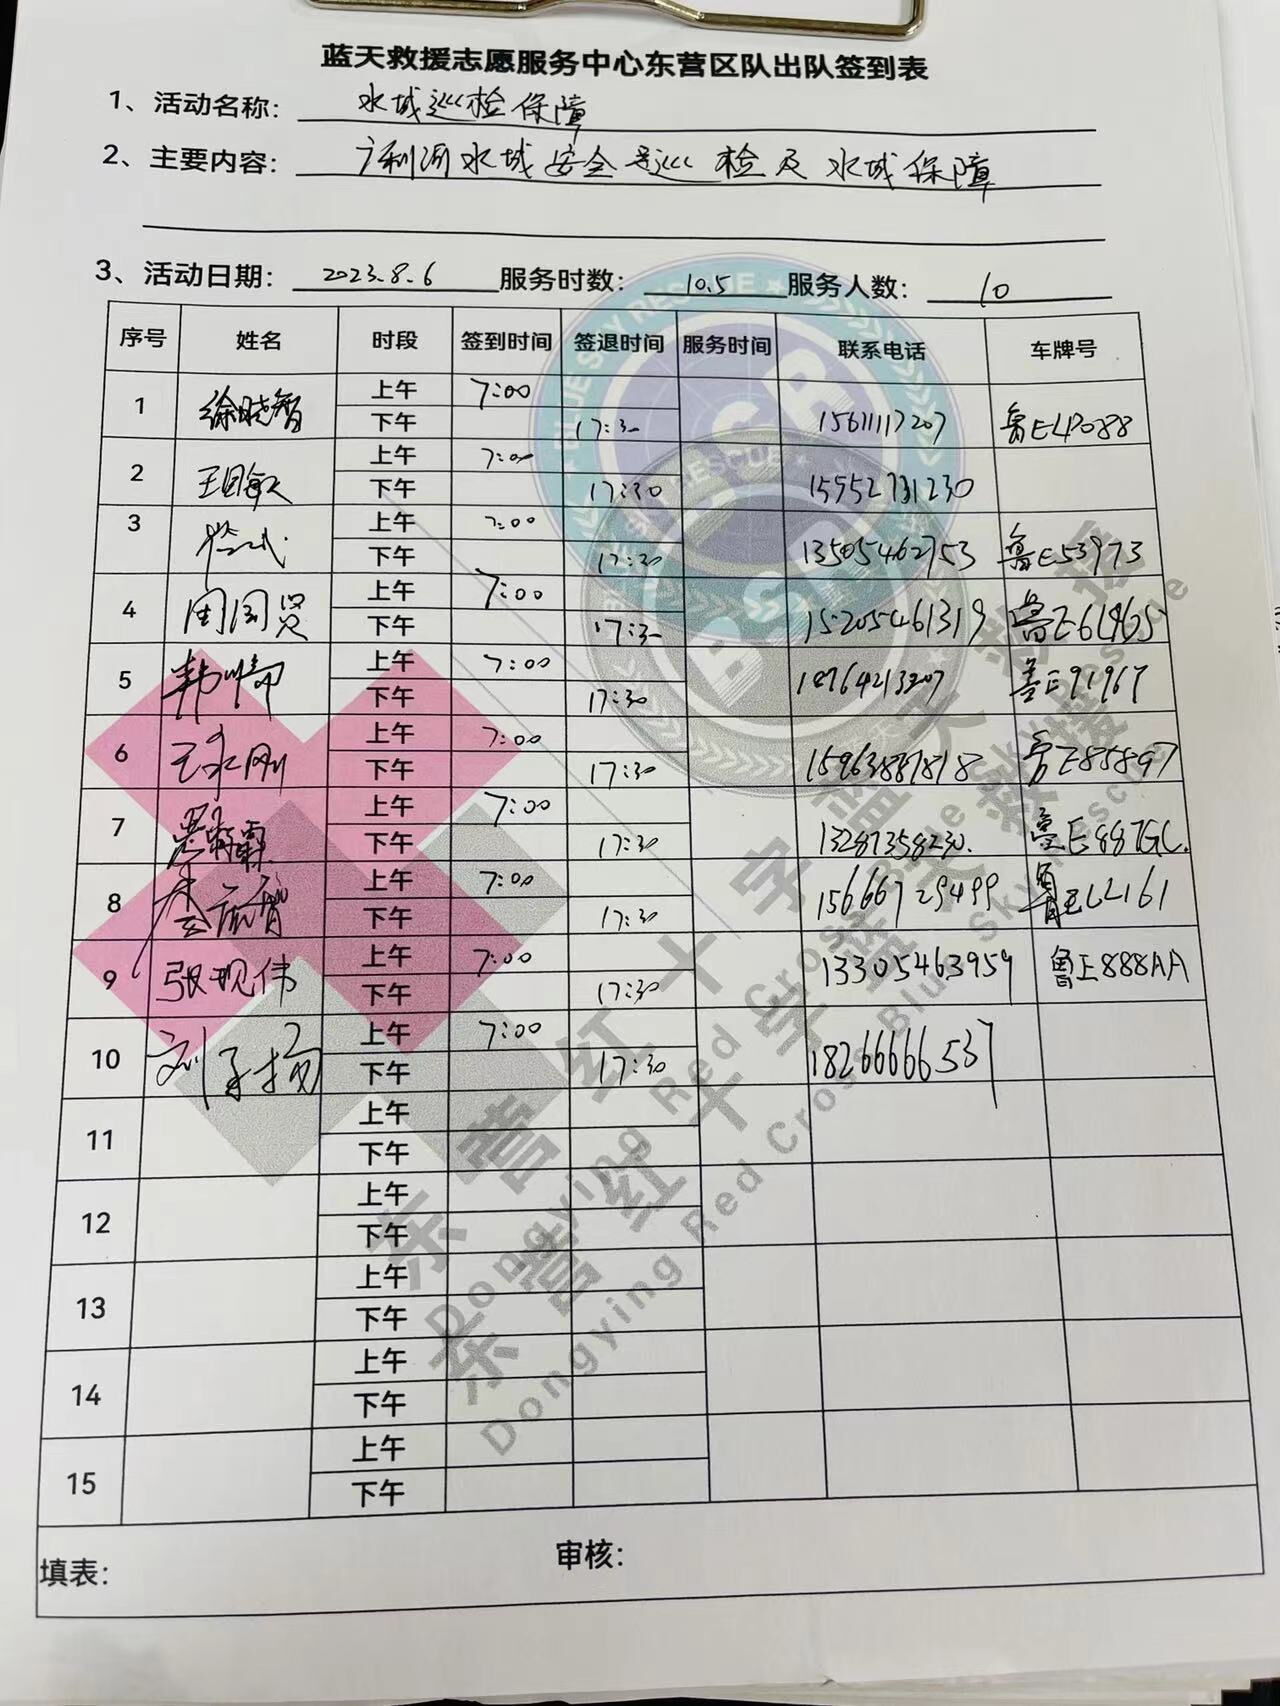 蓝天救援志愿服务中心东营区队出队签到表
1、活动名称: 水域巡检保障
2、主要内容: 广利河水域安全巡检及水域保障
3、活动日期: 2023.8.6 服务时数: 10.5 服务人数: 10
序号 姓名 时段 签到时间 签退时间 服务时间 联系电话 车牌号
1 徐晓智 上午 7:00
下午 17:30 15611117207 鲁E
2 上午 7:00
下午 17:30 15552731230
3 上午 7:00
下午 17:30 13505462753 鲁E53973
4 周国贤 上午 7:00
下午 17:30 15205461319 鲁E
5 韩帅帅 上午 7:00
下午 17:30 18764213207 鲁E91967
6 王永刚 上午 7:00
下午 17:30 鲁E85897
7 上午 7:00
下午 17:30 13287358230. 鲁E887GC.
8 上午 7:00
下午 17:30 15666729499 鲁ELL161
9 张现伟 上午 7:00
下午 17:30 13305463959 鲁E888AA
10 刘子扬 上午 7:00
下午 17:30 18266666537
11 上午
下午
12 上午
下午
13 上午
下午
14 上午
下午
15 上午
下午
填表: 审核:
BLUE SKY RESCUE
BSR
东营红十字蓝天救援
Dongying Red Cross Blue Sky Rescue
东营红十字蓝天救援
Dongying Red Cross Blue Sky Rescue